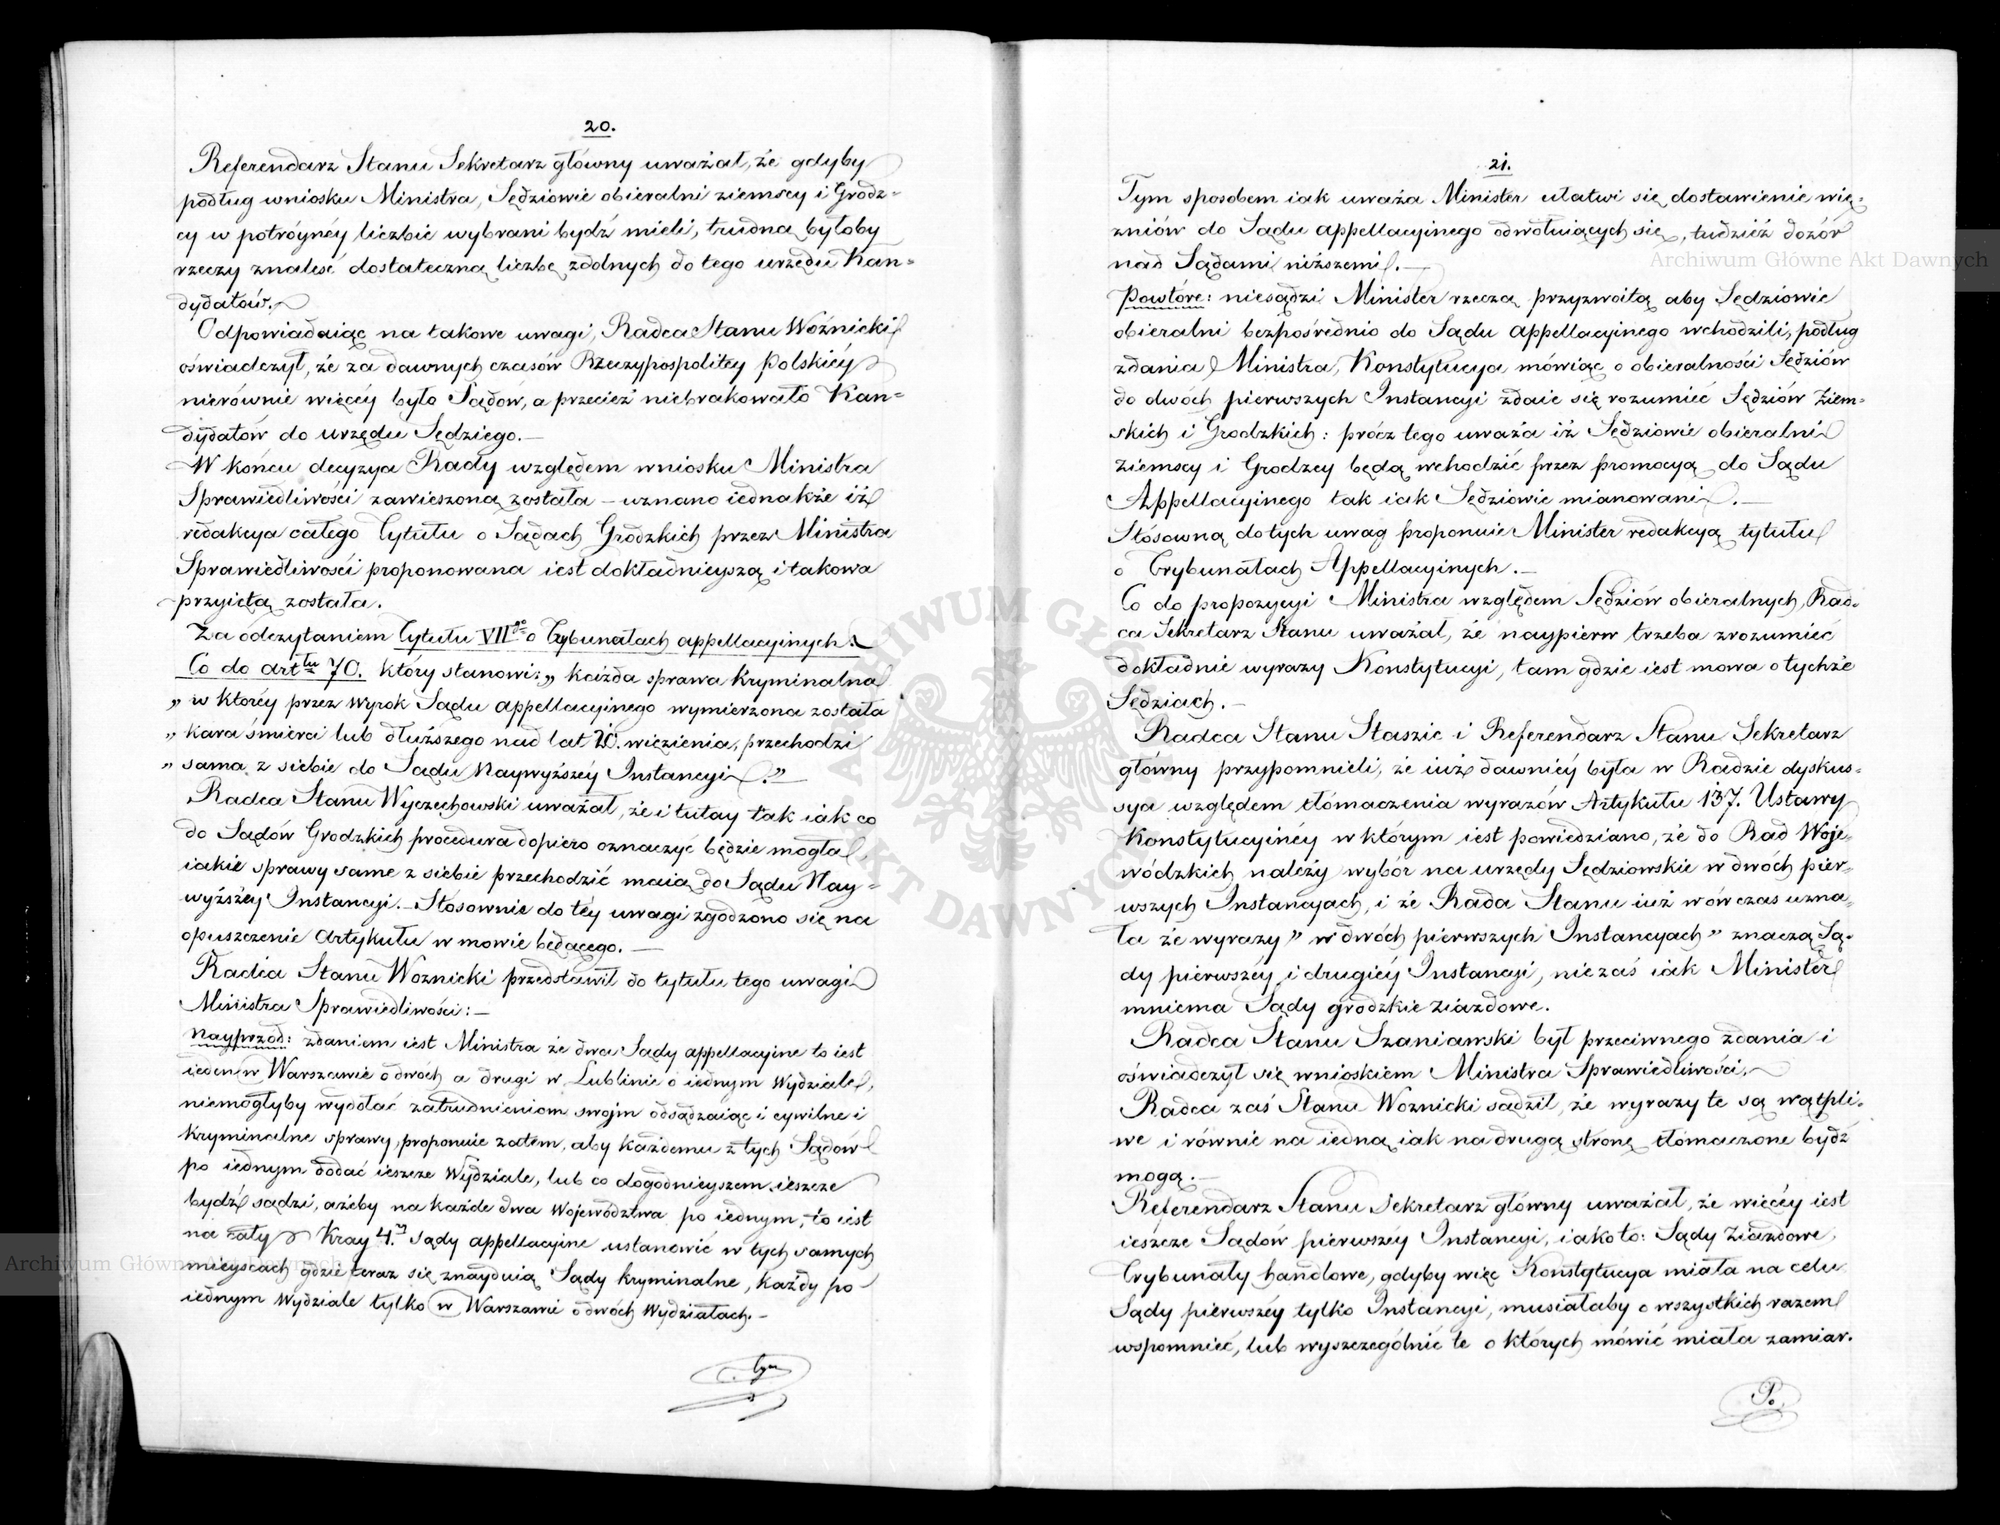 20.
Referendarz Stanu Sekretarz główny uważał, że gdyby
podług wniosku Ministra, Sędziowie obieralni ziemscy i Grodz=
cy w potróynéy liczbie wybrani bydź mieli, trudną byłoby
rzeczy znaleść dostateczną liczbę zdolnych do tego urzędu Kan=
dydatów.
Odpowiadaiąc na takowe uwagi, Radca Stanu Woźnicki
oświadczył, że za dawnych czasów Rzeczypospolitey Polskiéy
nierównie więcéy było Sądów, a przecież niebrakowało Kan=
dydatów do urzędu Sędziego.—
W końcu decyzya Rady względem wniosku Ministra
Sprawiedliwości zawieszoną została – uznano iednakże iż
redakcya całego Tytułu o Sądach Grodzkich przez Ministra
Sprawiedliwości proponowana iest dokładnieyszą i takowa
przyiętą została.
Za odczytaniem Tytułu VIIgo o Trybunałach appellacyinych.
Co do arttu 70. który stanowi: „ każda sprawa kryminalna
„ w któréy przez wyrok Sądu appellacyinego wymierzona została
„ kara śmierci lub dłuższego nad lat 20. więzienia, przechodzi
„ sama z siebie do Sądu Naywyższéy Instancyi.”—
Radca Stanu Wyczechowski uważał, że i tutay tak iak co
do Sądów Grodzkich procedura dopiero oznaczyć będzie mogła,
iakie sprawy same z siebie przechodzić maią do Sądu Nay=
wyższéy Instancyi.— Stósownie do téy uwagi zgodzono się na
opuszczenie Artykułu w mowie będącego.—
Radca Stanu Woznicki przedstawił do tytułu tego uwagi
Ministra Sprawiedliwości:—
Nayprzód: zdaniem iest Ministra że dwa Sądy appellacyine to iest
ieden w Warszawie o dwóch a drugi w Lublinie o iednym Wydziale,
niemogłyby wydołać zatrudnieniom swoim odsądzaiąc i cywilne i
kryminalne sprawy, proponuie zatém, aby każdemu z tych Sądów
po iednym dodać ieszcze Wydziale, lub co dogodnieyszem ieszcze
bydź sądzi, ażeby na każde dwa Województwa po iednym, to iest
na cały Kray 4.ry sądy appellacyine ustanowić w tych samych
mieyscach gdzie teraz się znayduią Sądy kryminalne, każdy po
iednym Wydziale tylko w Warszawie o dwóch Wydziałach.—
Tym
21.
Tym sposobem iak uważa Minister ułatwi się dostawienie wię=
zniów do Sądu appellacyinego odwołuiących się, tudzież dozór
nad Sądami niższemi.—
Powtóre: niesądzi Minister rzeczą przyzwoitą aby Sędziowie
obieralni bezpośrednio do Sądu appellacyinego wchodzili, podług
zdania Ministra, Konstytucya mówiąc o obieralności Sędziów
do dwóch pierwszych Instancyi zdaie się rozumieć Sędziów Ziem=
skich i Grodzkich: prócz tego uważa iż Sędziowie obieralni
Ziemscy i Grodzcy będą wchodzić przez promocyą do Sądu
Appellacyinego tak iak Sędziowie mianowani.—
Stósowną do tych uwag proponuie Minister redakcyą tytułu
o Trybunałach Appellacyinych.—
Co do propozycyi Ministra względem Sędziów obieralnych, Rad=
ca Sekretarz Stanu uważał, że naypierw trzeba zrozumieć
dokładnie wyrazy Konstytucyi, tam gdzie iest mowa o tychże
Sędziach.—
Radca Stanu Staszic i Referendarz Stanu Sekretarz
główny przypomnieli, że iuż dawniéy była w Radzie dyskus=
sya względem tłómaczenia wyrazów Artykułu 137. Ustawy
Konstytucyinéy w którym iest powiedziano, że do Rad Woje=
wódzkich należy wybór na urzędy Sędziowskie w dwóch pier=
wszych Instancyach, i że Rada Stanu iuż wówczas uzna=
ła że wyrazy „ w dwóch pierwszych Instancyach” znaczą Są=
dy pierwszéy i drugiéy Instancyi, nie zaś iak Minister
mniema Sądy grodzkie ziazdowe.
Radca Stanu Szaniawski był przeciwnego zdania i
oświadczył się wnioskiem Ministra Sprawiedliwości,—
Radca zaś Stanu Woznicki sądził, że wyrazy te są wątpli=
we i równie na iedną iak na drugą stronę tłómaczone bydź
mogą.—
Referendarz Stanu Sekretarz główny uważał, że więcéy iest
ieszcze Sądów pierwszéy Instancyi, iako to: Sądy Ziazdowe,
Trybunały handlowe, gdyby więc Konstytucya miała na celu
Sądy pierwszéy tylko Instancyi, musiałaby o wszystkich razem
wspomnieć, lub wyszczególnić te o których mówić miała zamiar.
Po.
Archiwum Główne Akt Dawnych
Archiwum Główne Akt Dawnych
ARCHIWUM GŁÓWNE AKT DAWNYCH